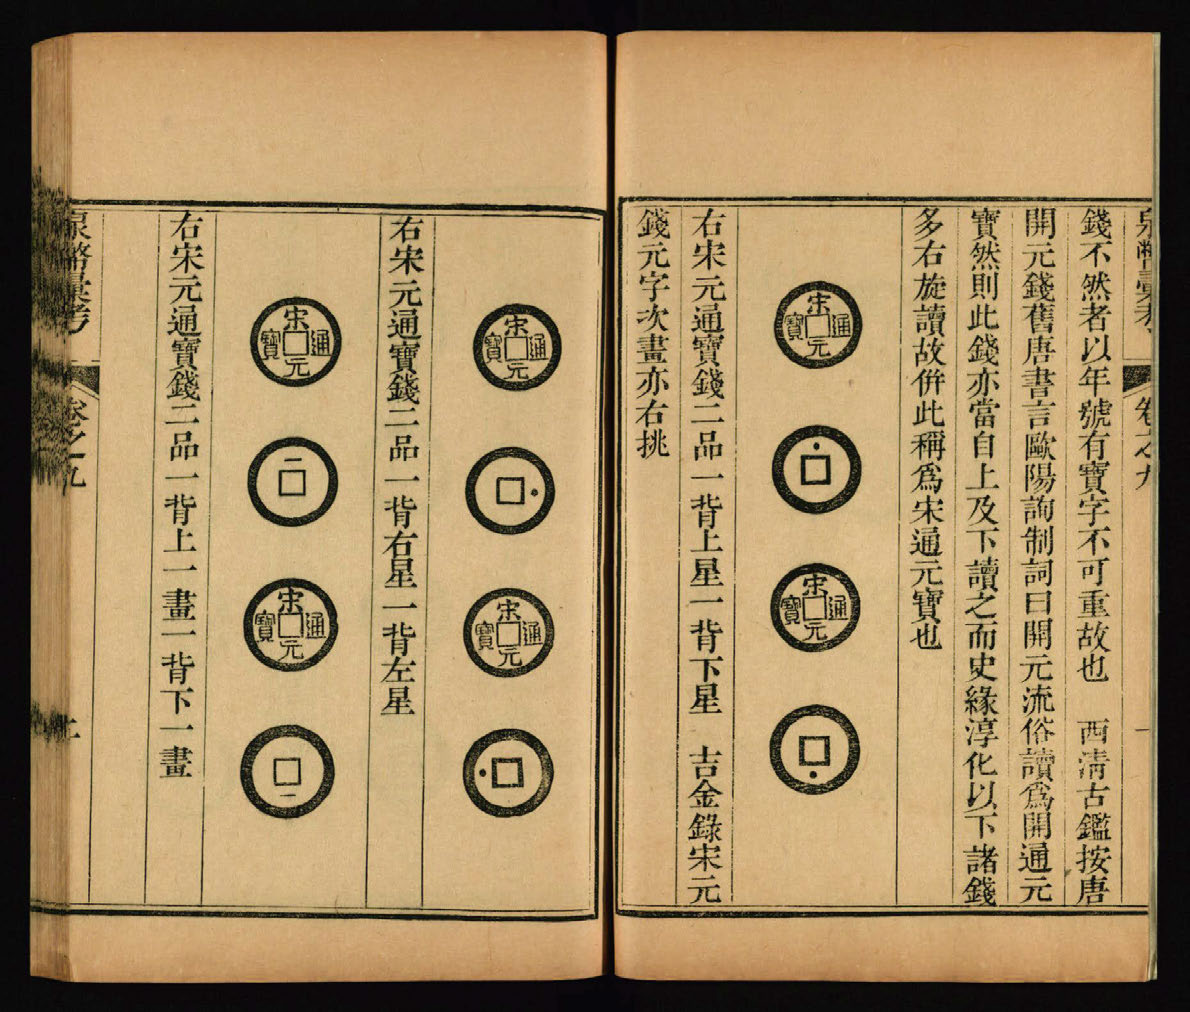 泉幣彙考
卷之九
一
錢不然者以年號有寶字不可重故也　西清古鑑按唐
開元錢舊唐書言歐陽詢制詞曰開元流俗讀爲開通元
寶然則此錢亦當自上及下讀之而史緣淳化以下諸錢
多右旋讀故併此稱爲宋通元寶也
宋元通寶
宋元通寶
右宋元通寶錢二品一背上星一背下星　吉金錄宋元
錢元字次畫亦右挑
宋元通寶
宋元通寶
右宋元通寶錢二品一背右星一背左星
宋元通寶
宋元通寶
右宋元通寶錢二品一背上一畫一背下一畫
泉幣彙考
卷之九